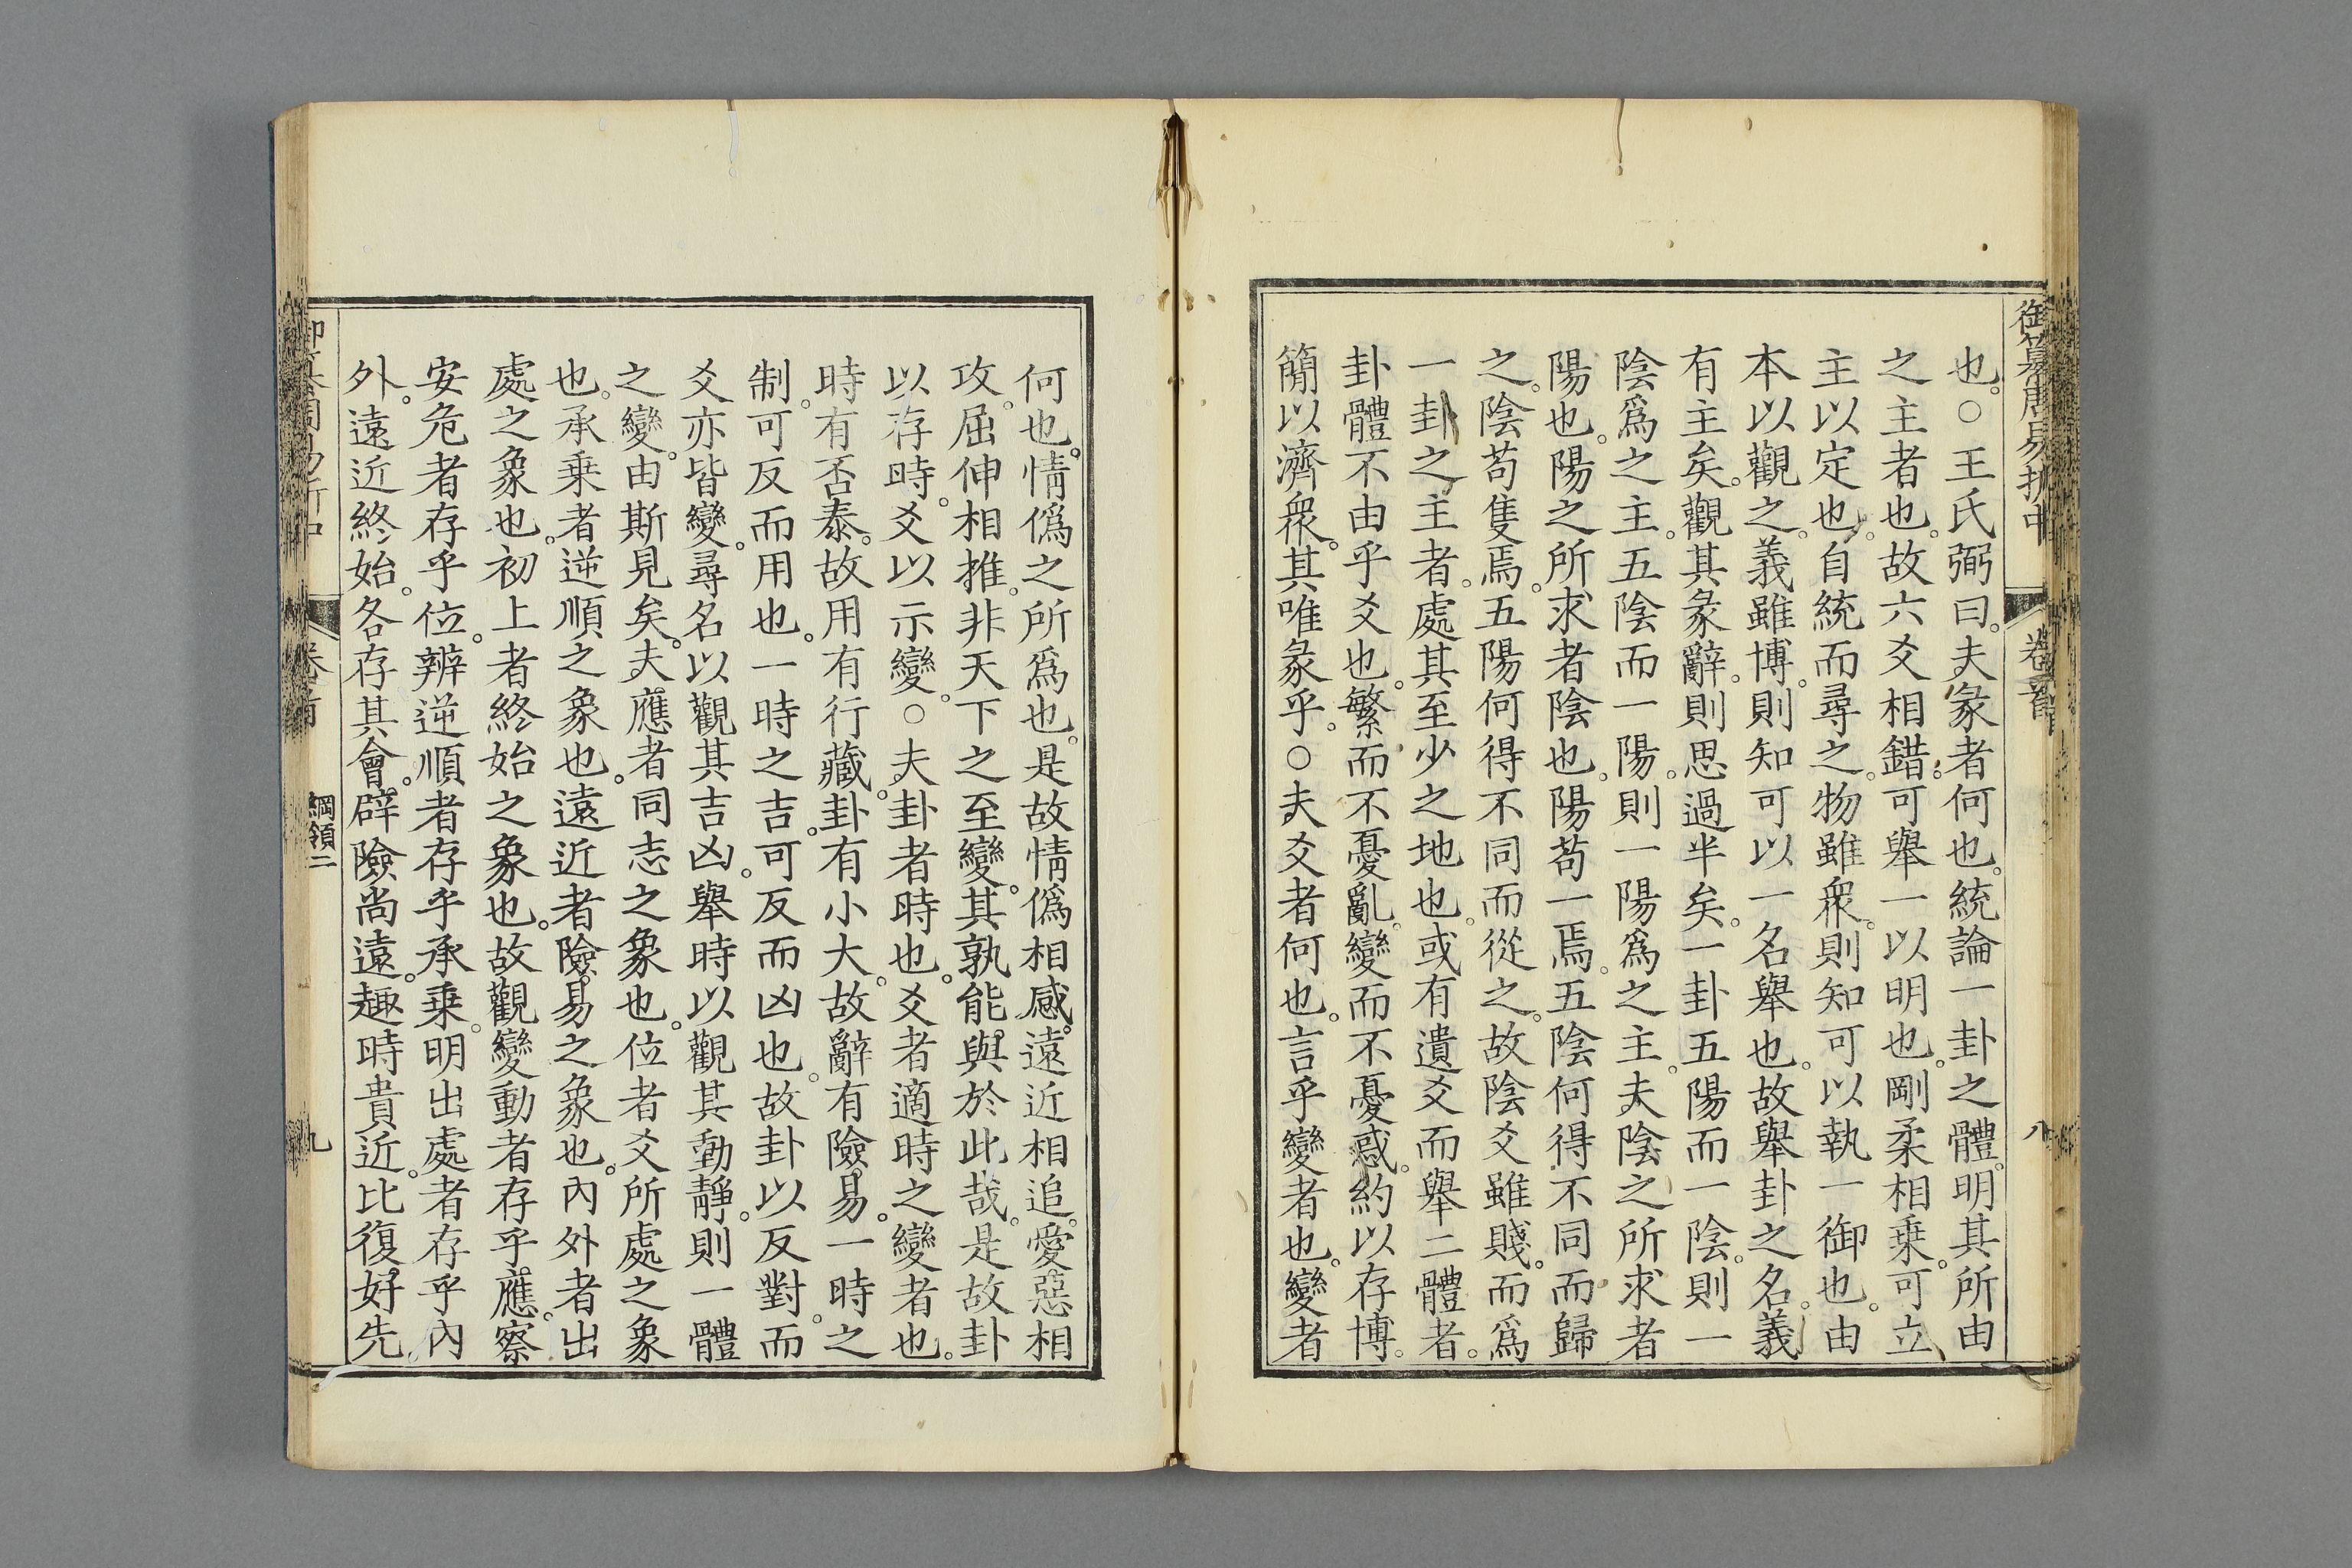 御纂周易折中 卷首 八
也。○王氏弼曰。夫彖者何也。統論一卦之體。明其所由
之主者也。故六爻相錯。可舉一以明也。剛柔相乘。可立
主以定也。自統而尋之。物雖衆。則知可以執一御也。由
本以觀之。義雖博。則知可以一名舉也。故舉卦之名。義
有主矣。觀其彖辭。則思過半矣。一卦五陽而一陰。則一
陰爲之主。五陰而一陽。則一陽爲之主。夫陰之所求者
陽也。陽之所求者陰也。陽苟一焉。五陰何得不同而歸
之。陰苟隻焉。五陽何得不同而從之。故陰爻雖賤。而爲
一卦之主者。處其至少之地也。或有遺爻而舉二體者。
卦體不由乎爻也。繁而不憂亂。變而不憂惑。約以存博。
簡以濟衆。其唯彖乎。○夫爻者何也。言乎變者也。變者
何也。情僞之所爲也。是故情僞相感。遠近相追。愛惡相
攻。屈伸相推。非天下之至變。其孰能與於此哉。是故卦
以存時。爻以示變。○夫卦者時也。爻者適時之變者也。
時有否泰。故用有行藏。卦有小大。故辭有險易。一時之
制。可反而用也。一時之吉。可反而凶也。故卦以反對。而
爻亦皆變。尋名以觀其吉凶。舉時以觀其動靜。則一體
之變。由斯見矣。夫應者同志之象也。位者爻所處之象
也。承乘者逆順之象也。遠近者險易之象也。內外者出
處之象也。初上者終始之象也。故觀變動者存乎應。察
安危者存乎位。辨逆順者存乎承乘。明出處者存乎內
外。遠近終始。各存其會。辟險尚遠。趣時貴近。比復好先。
卷首 綱領二 九